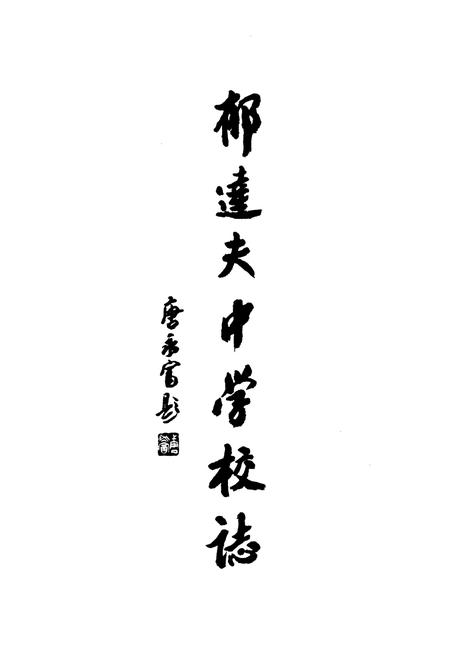 郁達夫中学校誌
唐永富题